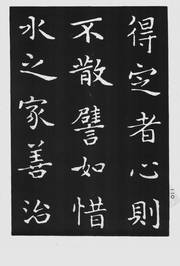 得定者心則
不散譬如惜
水之家善治
二〇